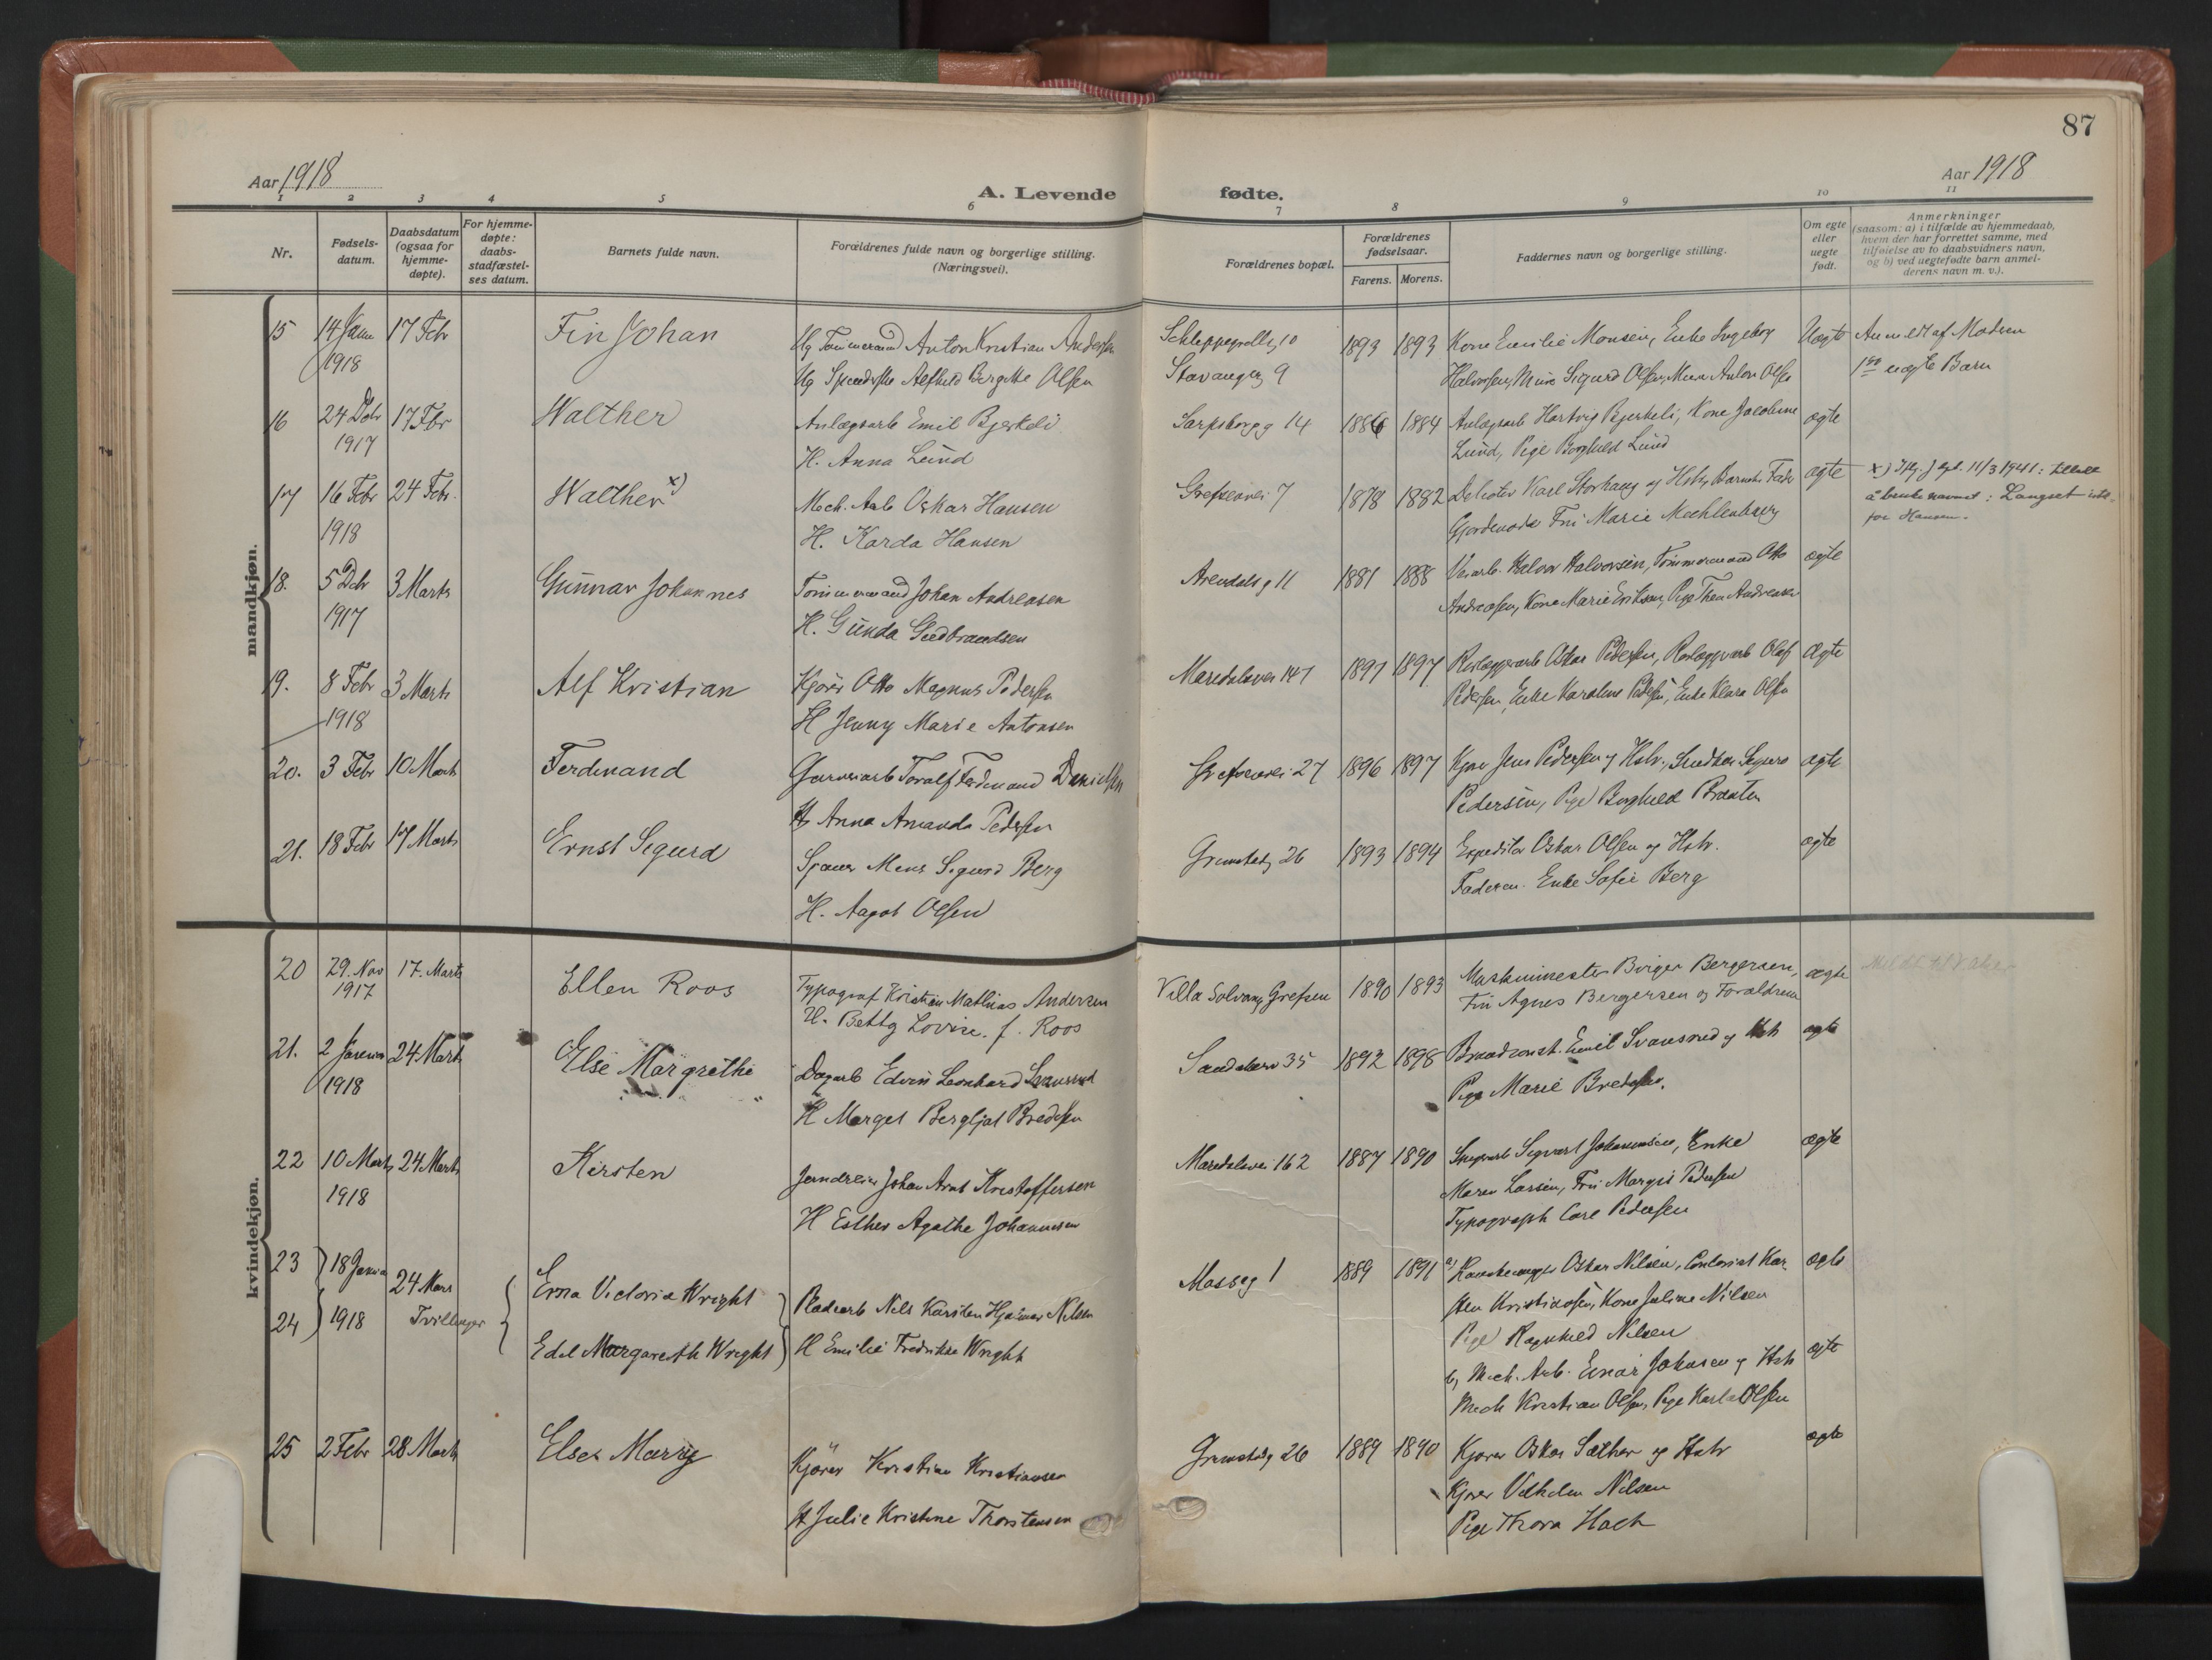 87
Aar 1918
A. Levende
fødte.
Aar 1918
1 2 3 4 5 6 7 8 9 10 11
Nr.
Fødsels-
datum.
Daabsdatum
(ogsaa for
hjemme-
døpte).
For hjemme-
døpte:
daabs-
stadfæstel-
ses datum.
Barnets fulde navn.
Forældrenes fulde navn og borgerlige stilling.
(Næringsvei).
Forældrenes bopæl.
Forældrenes
fødselsaar.
Farens. Morens.
Faddernes navn og borgerlige stilling.
Om egte
eller
uegte
født.
Anmerkninger
(saasom: a) i tilfælde av hjemmedaab,
hvem der har forrettet samme, med
tilføielse av to daabsvidners navn,
og b) ved uegtefødte barn anmel-
derens navn m. v.).
mandkjøn.
15 14 Janu 17 Febr Fin Johan Ug Tømmermand Anton Kristian Andersen Schleppegrellsg 10 1893 1893 Kone Emilie Monsen, Enke Ingeborg Uægte Anmeldt af Modren
1918 Ug Alfhild Bergitte Olsen Stavangerg 9 Halvorsen, Sigurd Olsen, Anton Olsen uægte Barn
16 24 Debr 17 Fbr Walther Anlægsarb Emil Bjerkeli Sarpsborgg 14 1886 1884 Anlægsarb Hartvig Bjerkeli, Kone Jacobine ægte
1917 H. Anna Lund Lund, Pige Borghild Lund
17 16 Febr 24 Febr. Walther x) Mech. Arb Oskar Hansen Grefsenvei 7 1878 1882 Karl Storhaug og Hstr, Barnets Fader ægte x) 11/3 1941: tillatt
1918 H. Karda Hansen Gjordemoder Fru Marie Mechlenburg å bruke navnet: Langset istf.
for Hansen.
18. 5 Debr 3 Marts Gunnar Johannes Tømmermand Johan Andreasen Arendalsg 11 1881 1888 Halvor Halvorsen, Tømmermand Otto ægte
1917 H. Gunda Gudbrandsen Andreasen, Kone Marie Eriksen, Pige Thea Andreasen
19. 8 Febr 3 Marts Alf Kristian Kjører Otto Magnus Pedersen Maridalsvei 147 1897 1897 Oskar Pedersen, Olaf Ægte
1918 H Jenny Marie Antonsen Pedersen, Enke Karoline Pedersen, Enke Klara Olsen
20. 3 Febr 10 Marts Ferdinand Garveriarb Toralf Ferdinand Danielsen Grefsenvei 27 1896 1897 Kjører Jens Pedersen og Hstr., ægte
H Anna Amanda Pedersen Pedersen, Pige Borghild Braaten
21. 18 Febr 17 Marts Ernst Sigurd Mons Sigurd Berg Grimstadg 26 1893 1894 Expeditør Oskar Olsen og Hstr. ægte
H. Aagot Olsen Faderen. Enke Sofie Berg
kvindekjøn.
20 29. Nov 17. Marts Ellen Roos Typograf Kristian Mathias Andersen Villa Solvang, Grefsen 1890 1893 Maskinmester Birger Bergersen, ægte
1917 H. Betty Lovise. f. Roos Fru Agnes Bergersen og Forældrene
21. 2 Januar 24 Marts Else Margrethe Dagarb Edvin Leonhard Svansrud Sandakerv 35 1892 1898 Brandconst. Emil Svansrud og Hstr ægte
1918 H Margit Bergljot Bredesen Pige Marie Bredesen.
22 10 Marts 24 Marts Kirsten Jerndreier Johan Arnt Kristoffersen Maridalsvei 162 1887 1890 Sigvart Johannesen, Enke ægte
1918 H Esther Agathe Johannesen Maren Larsen, Fru Margit Pedersen
Typograph Carl Pedersen
23 18 Janua 24 Mars Erna Victoria Wright Pladearb Nils Karsten Hjalmar Nilsen Mosseg 1 1889 1891 a) Oskar Nilsen, Contorist Kar- ægte
24 1918 Tvillinger Edel Margareth Wright H Emilie Fredrikke Wright sten Kristiansen, Kone Juline Nilsen
Pige Ragnhild Nilsen
b, Mech. Arb. Einar Johnsen og Hstr ægte
Mech Kristian Olsen, Pige Karla Olsen
25 2 Febr 28 Marts Else Marry Kjører Kristian Kristiansen Grimstadg 26 1889 1890 Kjører Oskar Sæther og Hstr ægte
H Julie Kristine Thorstensen Kjører Vilhelm Nilsen
Pige Thora Hoch